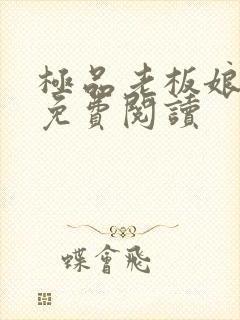 極品老板娘
免費閱讀
蝶會飛